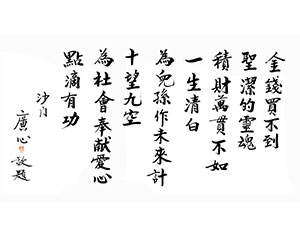 金錢買不到
聖潔的靈魂
積財萬貫不如
一生清白
為兒孫作未來計
十望九空
為社會奉獻愛心
點滴有功
沙門
廣心 敬題